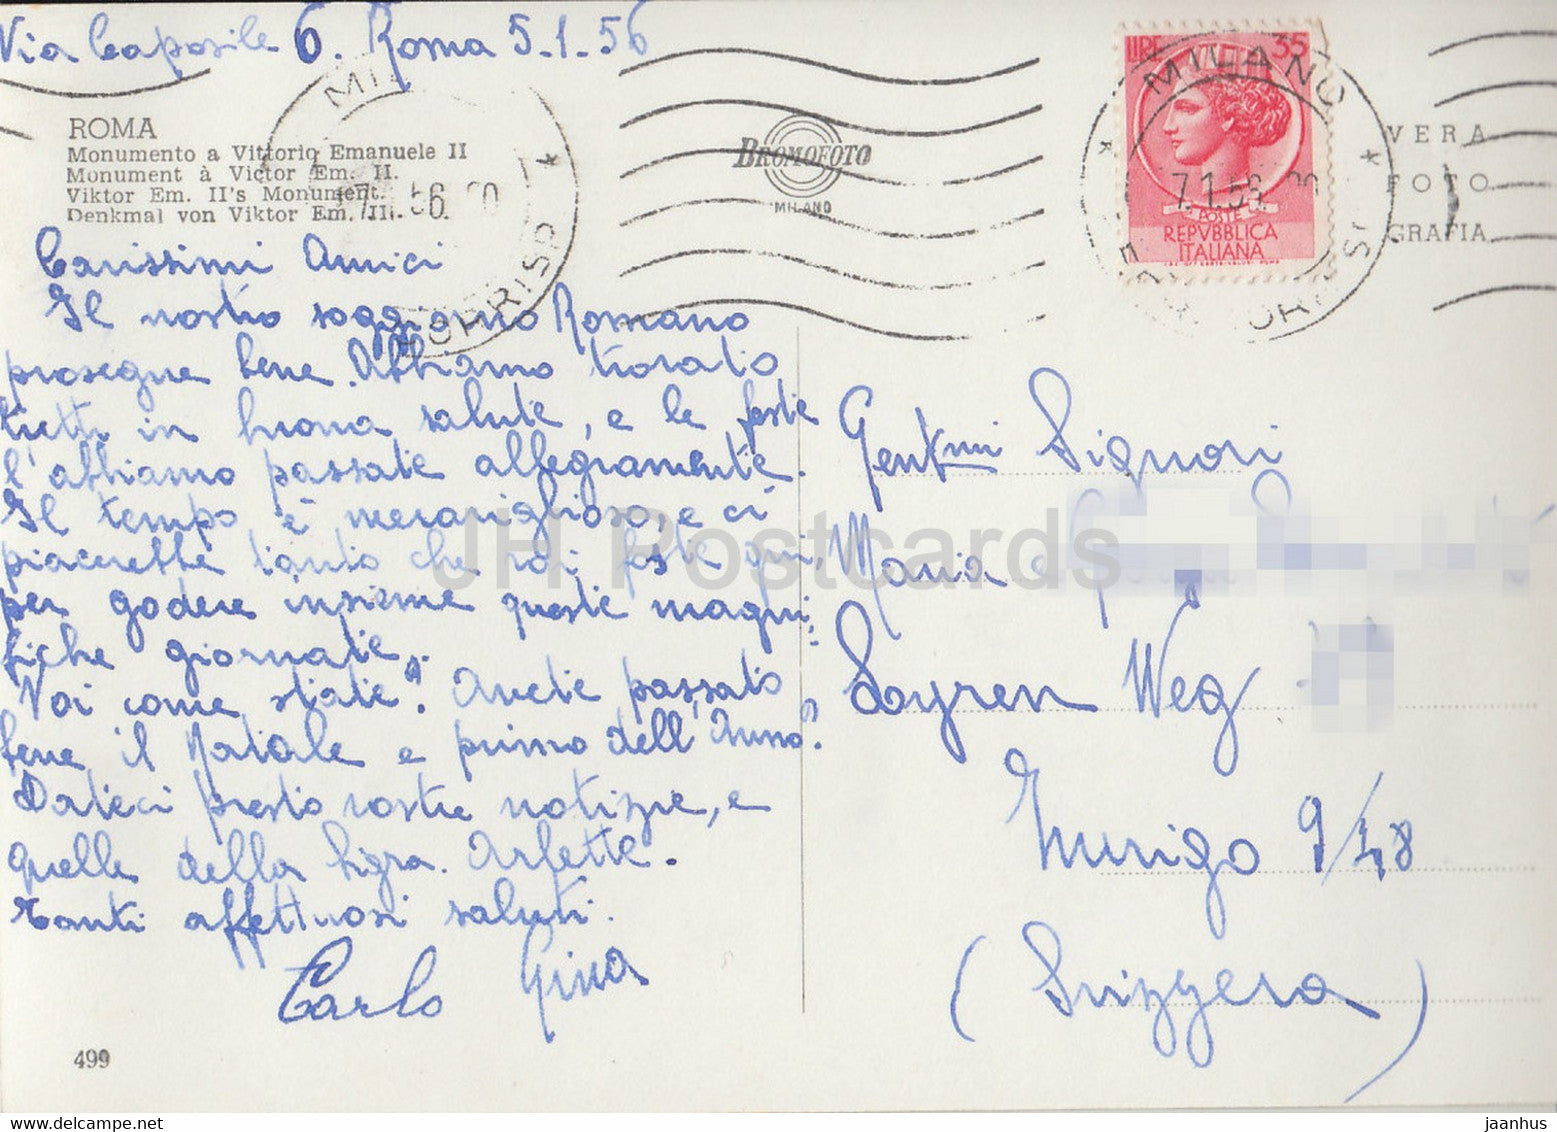 Via Caposile 6. Roma 5-1-56
ROMA
Monumento a Vittorio Emanuele II
Monument à Victor Em. II.
Viktor Em. II's Monument.
Denkmal von Viktor Em. II.
BROMOFOTO
MILANO
LIRE 35
POSTE
REPVBBLICA
ITALIANA
MILANO
7.1.56
VERA
FOTO
GRAFIA
Carissimi Amici
Il nostro soggiorno Romano
prosegue bene. Abbiamo trovato
tutti in buona salute, e le feste
l'abbiamo passate allegramente.
Il tempo è meraviglioso, e ci
piacerebbe tanto che voi foste qui,
per godere insieme queste magni,
fiche giornate.
Voi come state? Avete passato
bene il Natale e primo dell'Anno?
Dateci presto vostre notizie, e
quelle della Sigra.
Tanti affettuosi saluti.
Carlo Gina
Gentmi Signori
Maria e
Weg
Zurigo 9/48
(Svizzera)
499
JH Postcards
jaanhus